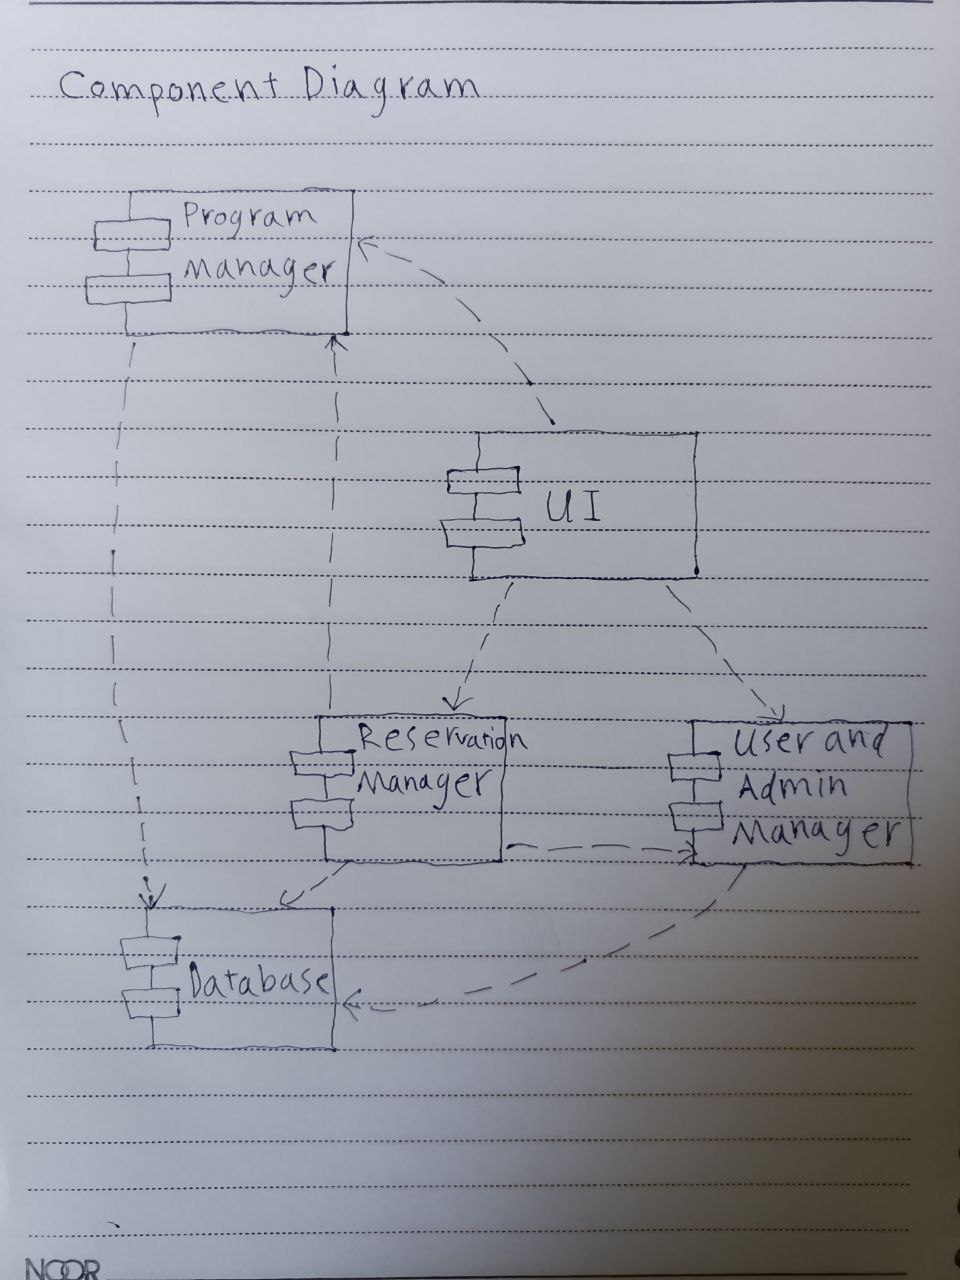 Component Diagram
Program
Manager
UI
Reservation
Manager
User and
Admin
Manager
Database
NOOR